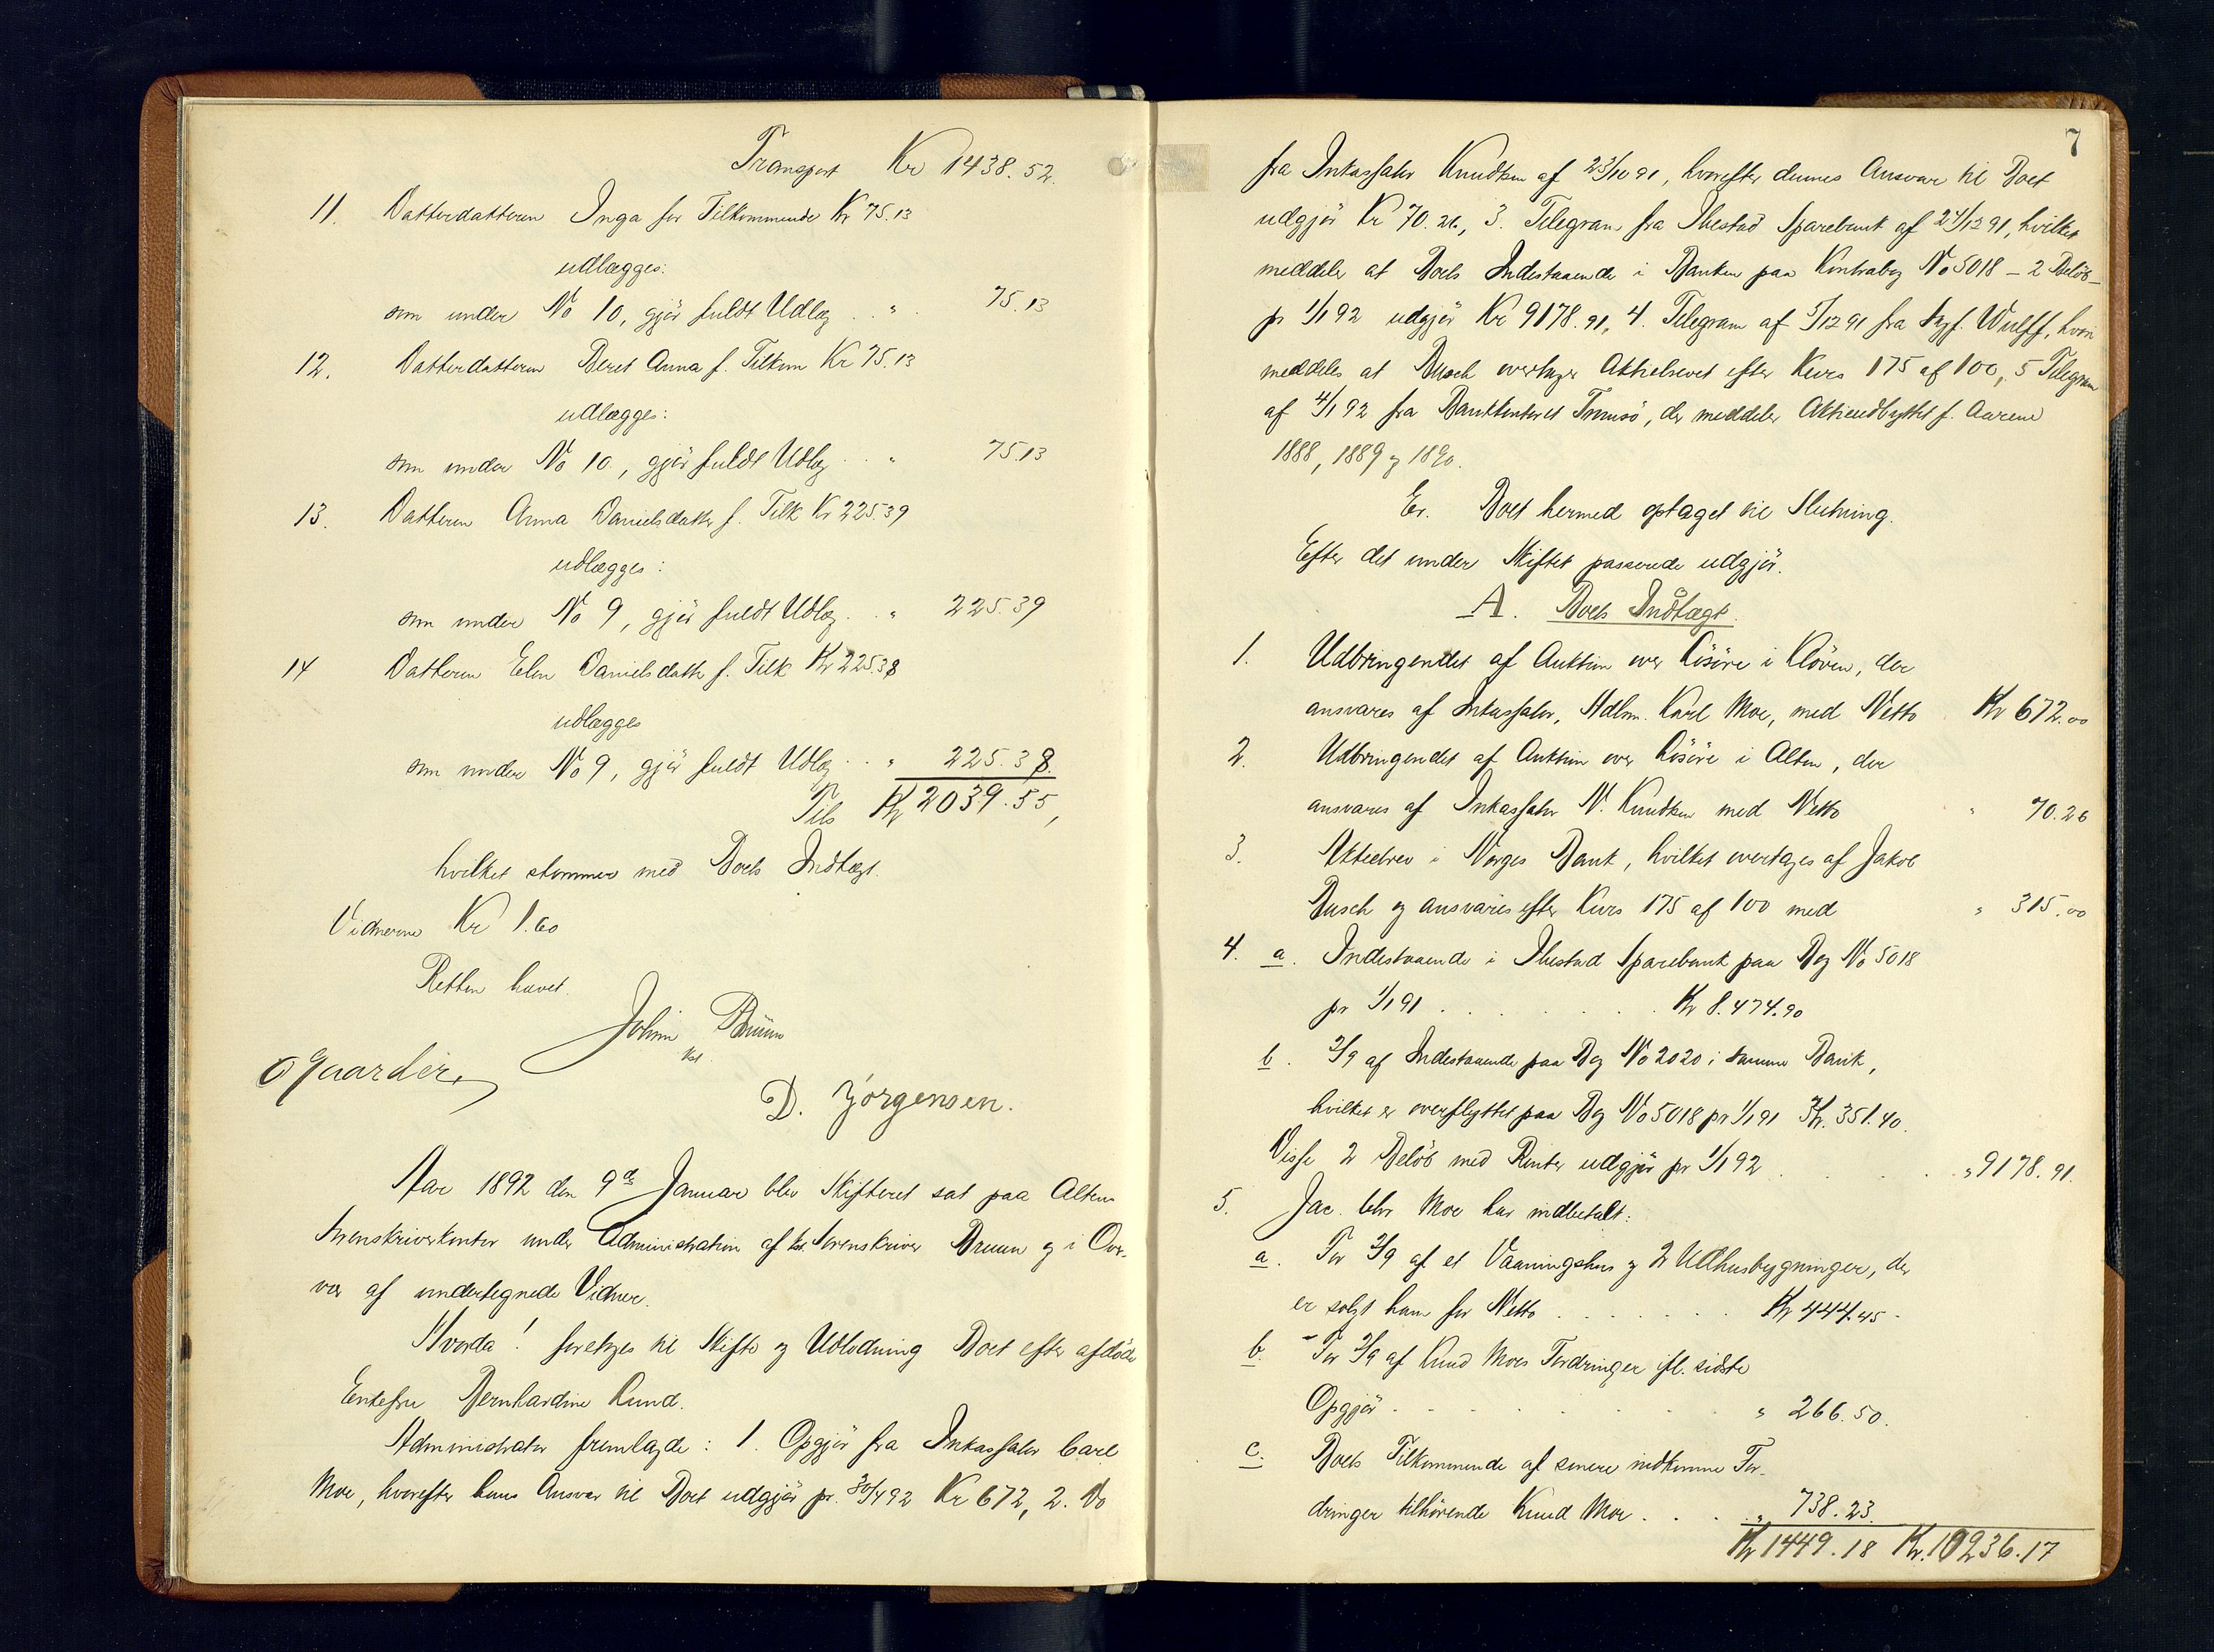 Transport Kr 1438.52.
11. Datterdatteren Inga for Tilkommende Kr 75.13
udlægges:
som under No 10, gjør fuldt Udlæg . . " . 75.13
12. Datterdatteren Beret Anna f. Tilkom Kr 75.13
udlægges:
som under No 10, gjør fuldt Udlæg . . " 75.13
13. Datteren Anna Danielsdatter f. Tilk Kr 225.39
udlægges:
som under No 9, gjør fuldt Udlæg . . " 225.39
14 Datteren Elen Danielsdatter f. Tilk Kr 225.38
udlægges
som under No 9, gjør fuldt Udlæg . . " 225.38.
Tils Kr 2039.55,
hvilket stemmer med Boets Indtægt.
Vidnerne Kr 1.60
Retten hævet.
Johin Bruun
kst.
O Gaarder
D. Jørgensen.
Aar 1892 den 9de Januar blev Skifteret sat paa Altens
Sorenskriverkontor under Administration af kst. Sorenskriver Bruun og i Over-
vær af undertegnede Vidner.
Hvorda! foretoges til Skifte og Udlodning Boet efter afdøde
Enkefru Bernhardine Lund.
Administrator fremlagde: 1. Opgjør fra Inkassator Carl
Moe, hvorefter hans Ansvar til Boet udgjør pr. 30/4 92 Kr 672, 2. Do
7
fra Inkassator Knudtsen af 23/10 91, hvorefter dennes Ansvar til Boet
udgjør Kr 70.26, 3. Telegram fra Ibestad Sparebank af 24/12 91, hvilket
meddeler at Boets Indestaaende i Banken paa Kontrabog No 5018 – 2 Beløb –
pr 1/1 92 udgjør Kr 9178.91, 4. Telegram af 5/12 91 fra Sagf. Wulff, hvori
meddeles at Busch overtager Aktiebrevet efter Kurs 175 af 100, 5 Telegram
af 4/1 92 fra Bankkontoret Tromsø, der meddeler Aktieudbyttet f. Aarene
1888, 1889 og 1890.
Er. Boet hermed optaget til Slutning.
Efter det under Skiftet passerede udgjør.
A. Boets Indtægt.
1. Udbringendet af Auktion over Løsøre i Kløven, der
ansvares af Inkassator, Hdlm. Karl Moe, med Netto Kr 672.00
2. Udbringendet af Auktion over Løsøre i Alten, der
ansvares af Inkassator N. Knudtsen med Netto " 70.26
3. Aktiebrev i Norges Bank, hvilket overtages af Jakob
Busch og ansvares efter Kurs 175 af 100 med " 315.00
4. a. Indestaaende i Ibestad Sparebank paa Bog No 5018
pr 1/1 91 . . . . . . Kr 8.474.90
b. 2/9 af Indestaaende paa Bog No 2020 i samme Bank,
hvilket er overflyttet paa Bog No 5018 pr 1/1 91 Kr. 351.40.
Disse 2 Beløb med Renter udgjør pr 1/1 92 . . . . " 9178.91.
5. Jac. Chr Moe har indbetalt:
a. For 2/9 af et Vaaningshus og 2 Udhusbygninger, der
er solgt ham for Netto . . . . . . Kr 444.45.
b. For 2/9 af Knud Moes Fordringer ifl. sidste
Opgjør . . . . . . . " 266.50.
c. Boets Tilkommende af senere indkomne For-
dringer tilhørende Knud Moe . . . " 738.23.
Kr 1449.18 Kr. 10236.17